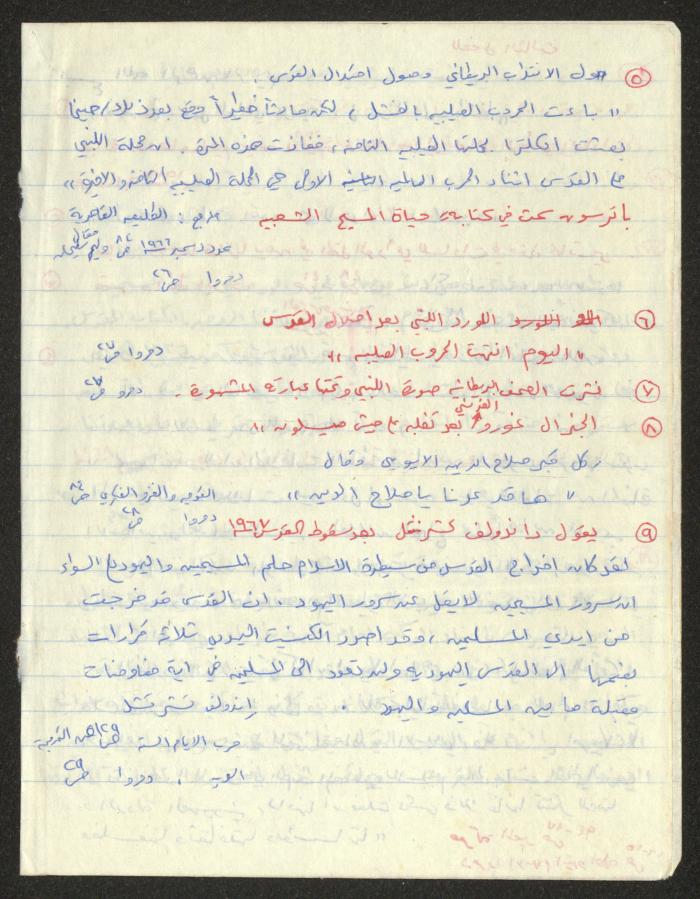 ٥ حول الانتداب البريطاني وحول احتلال القدس
" باءت الحروب الصليبية بالفشل، لكن حادثاً خطيراً وقع بعد ذلك، حينما
بعثت انكلترا بحملتها الصليبية الثامنة، ففازت هذه المرة. ان حملة اللنبي
على القدس اثناء الحرب العالمية الاولى هي الحملة الصليبية الثامنة والاخيرة "
باترسون سمث في كتابه حياة المسيح الشعبيه
عدد ديسمبر ١٩٦٦ ص
دمروا ص٢٦
٦ اللورد اللنبي بعد احتلال القدس
" اليوم انتهت الحروب الصلبيه "
دمروا ص٢٧
٧ نشرت الصحف البريطانية صورة اللنبي وتحتها عبارته المشهورة. دمروا ص٢٧
٨ الجنرال غورو الفرنسي بعد تغلبه على جيش ميسلون "
ركل قبر صلاح الدين الايوبي وقال
" ها قد عدنا يا صلاح الدين " القومية والغزو الفكري ص٨٤
دمروا ص٢٨
٩ يقول راندولف تشرتشل بعد سقوط القدس ١٩٦٧
لقد كان اخراج القدس من سيطرة الاسلام حلم المسيحيين واليهود على السواء
ان سرور المسيحيين لا يقل عن سرور اليهود. ان القدس قد خرجت
من ايدي المسلمين، وقد اصدر الكنيست اليهودي ثلاثة قرارات
بضمها الى القدس اليهودية ولن تعود الى المسلمين في اية مفاوضات
مقبلة ما بين المسلمين واليهود. راندولف تشرتشل
حرب الايام الستة ص١٢٩
دمروا ص٢٩